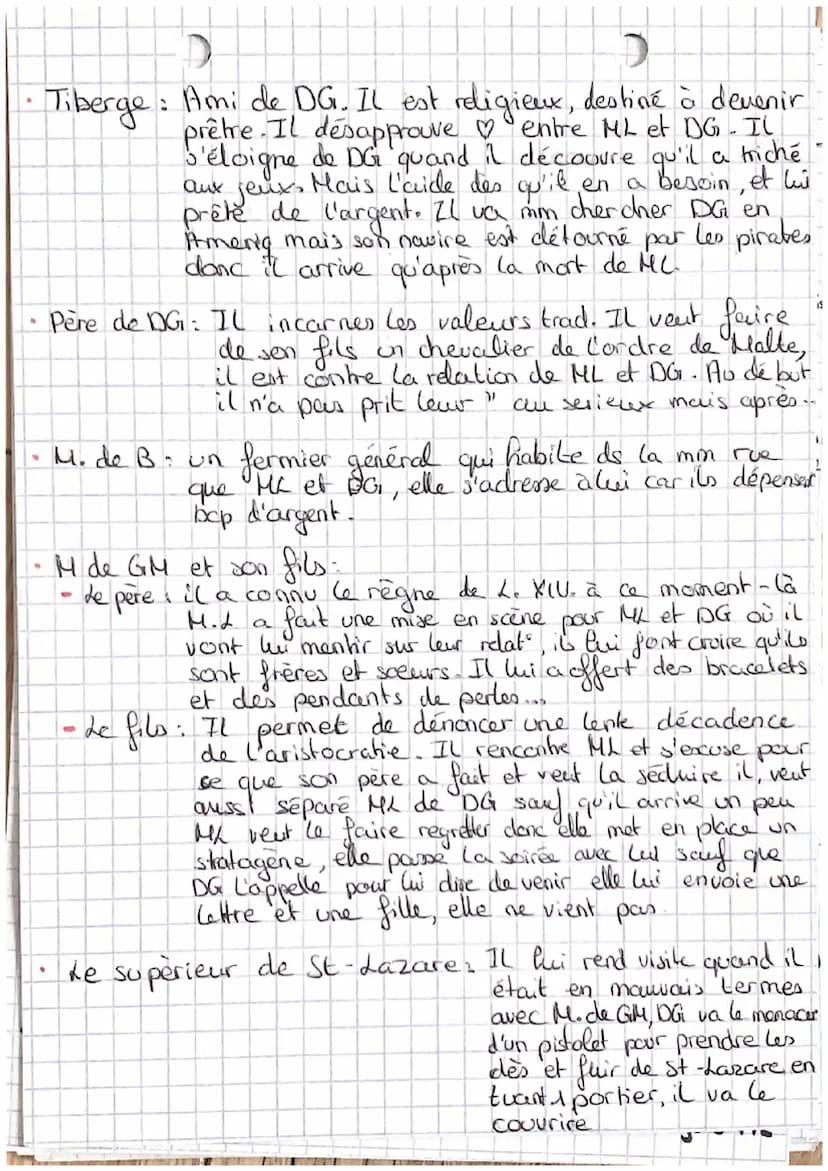 • Tiberge : Ami de DG. Il est religieux, destiné à devenir
prêtre. Il désapprouve ♡ entre ML et DG. Il
s'éloigne de DG quand il découvre qu'il a triché
aux jeux. Mais l'aide dès qu'il en a besoin, et lui
prête de l'argent. Il va mm chercher DG en
Ameriq mais son navire est détourné par les pirates
donc il arrive qu'après la mort de ML.
• Père de DG : Il incarnes les valeurs trad. Il veut faire
de son fils un chevalier de l'ordre de Malte,
il est contre la relation de ML et DG. Au début
il n'a pas prit leur " au serieux mais après...
• M. de B : un fermier général qui habite ds la mm rue
que ML et DG, elle s'adresse à lui car ils dépensent
bcp d'argent.
• M de GM et son fils :
- Le père : il a connu le règne de L. XIV. à ce moment-là
M.L a fait une mise en scène pour ML et DG où il
vont lui mentir sur leur relat°, ils lui font croire qu'ils
sont frères et soeurs. Il lui a offert des bracelets
et des pendants de perles...
- Le fils : Il permet de dénoncer une lente décadence
de l'aristocratie. Il rencontre ML et s'excuse pour
ce que son père a fait et veut la séduire il, veut
aussi séparé ML de DG sauf qu'il arrive un peu
ML veut le faire regretter donc elle met en place un
statagène, elle passe la soirée avec lui sauf que
DG l'appelle pour lui dire de venir elle lui envoie une
lettre et une fille, elle ne vient pas.
• Le supèrieur de St-Lazare : Il lui rend visite quand il
était en mauvais termes
avec M. de GM, DG va le menacer
d'un pistolet pour prendre les
clès et fuir de St-Lazare en
tuant 1 portier, il va le
couvrire